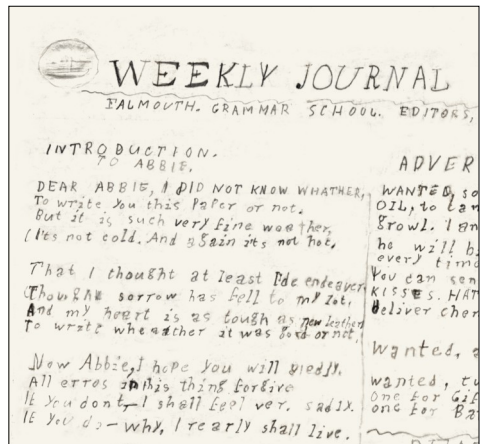 WEEKLY JOURNAL
FALMOUTH. GRAMMAR SCHOOL. EDITORS,
INTRODUCTION.
TO ABBIE.
DEAR ABBIE, I DID NOT KNOW WHATHER,
To write you this Paper or not.
But it is such very fine weather,
(It's not cold. And again its not hot.
That I thought at least I'de endeaver
Thought sorrow has fell to my lot,
And my heart is as tough as new leather
To write wheather it was good or not.
Now Abbie, I hope you will gledly,
All erros in this thing forgive
If you dont, I shall feel ver. sadly.
If you do - why, I rearly shall live.
ADVER
WANTED, so
OIL, to lan
growl. I an
he will bi
every time
You can sen
KISSES. HAT
deliver cher
Wanted, a
wanted, tw
one for Gif
one for Ba